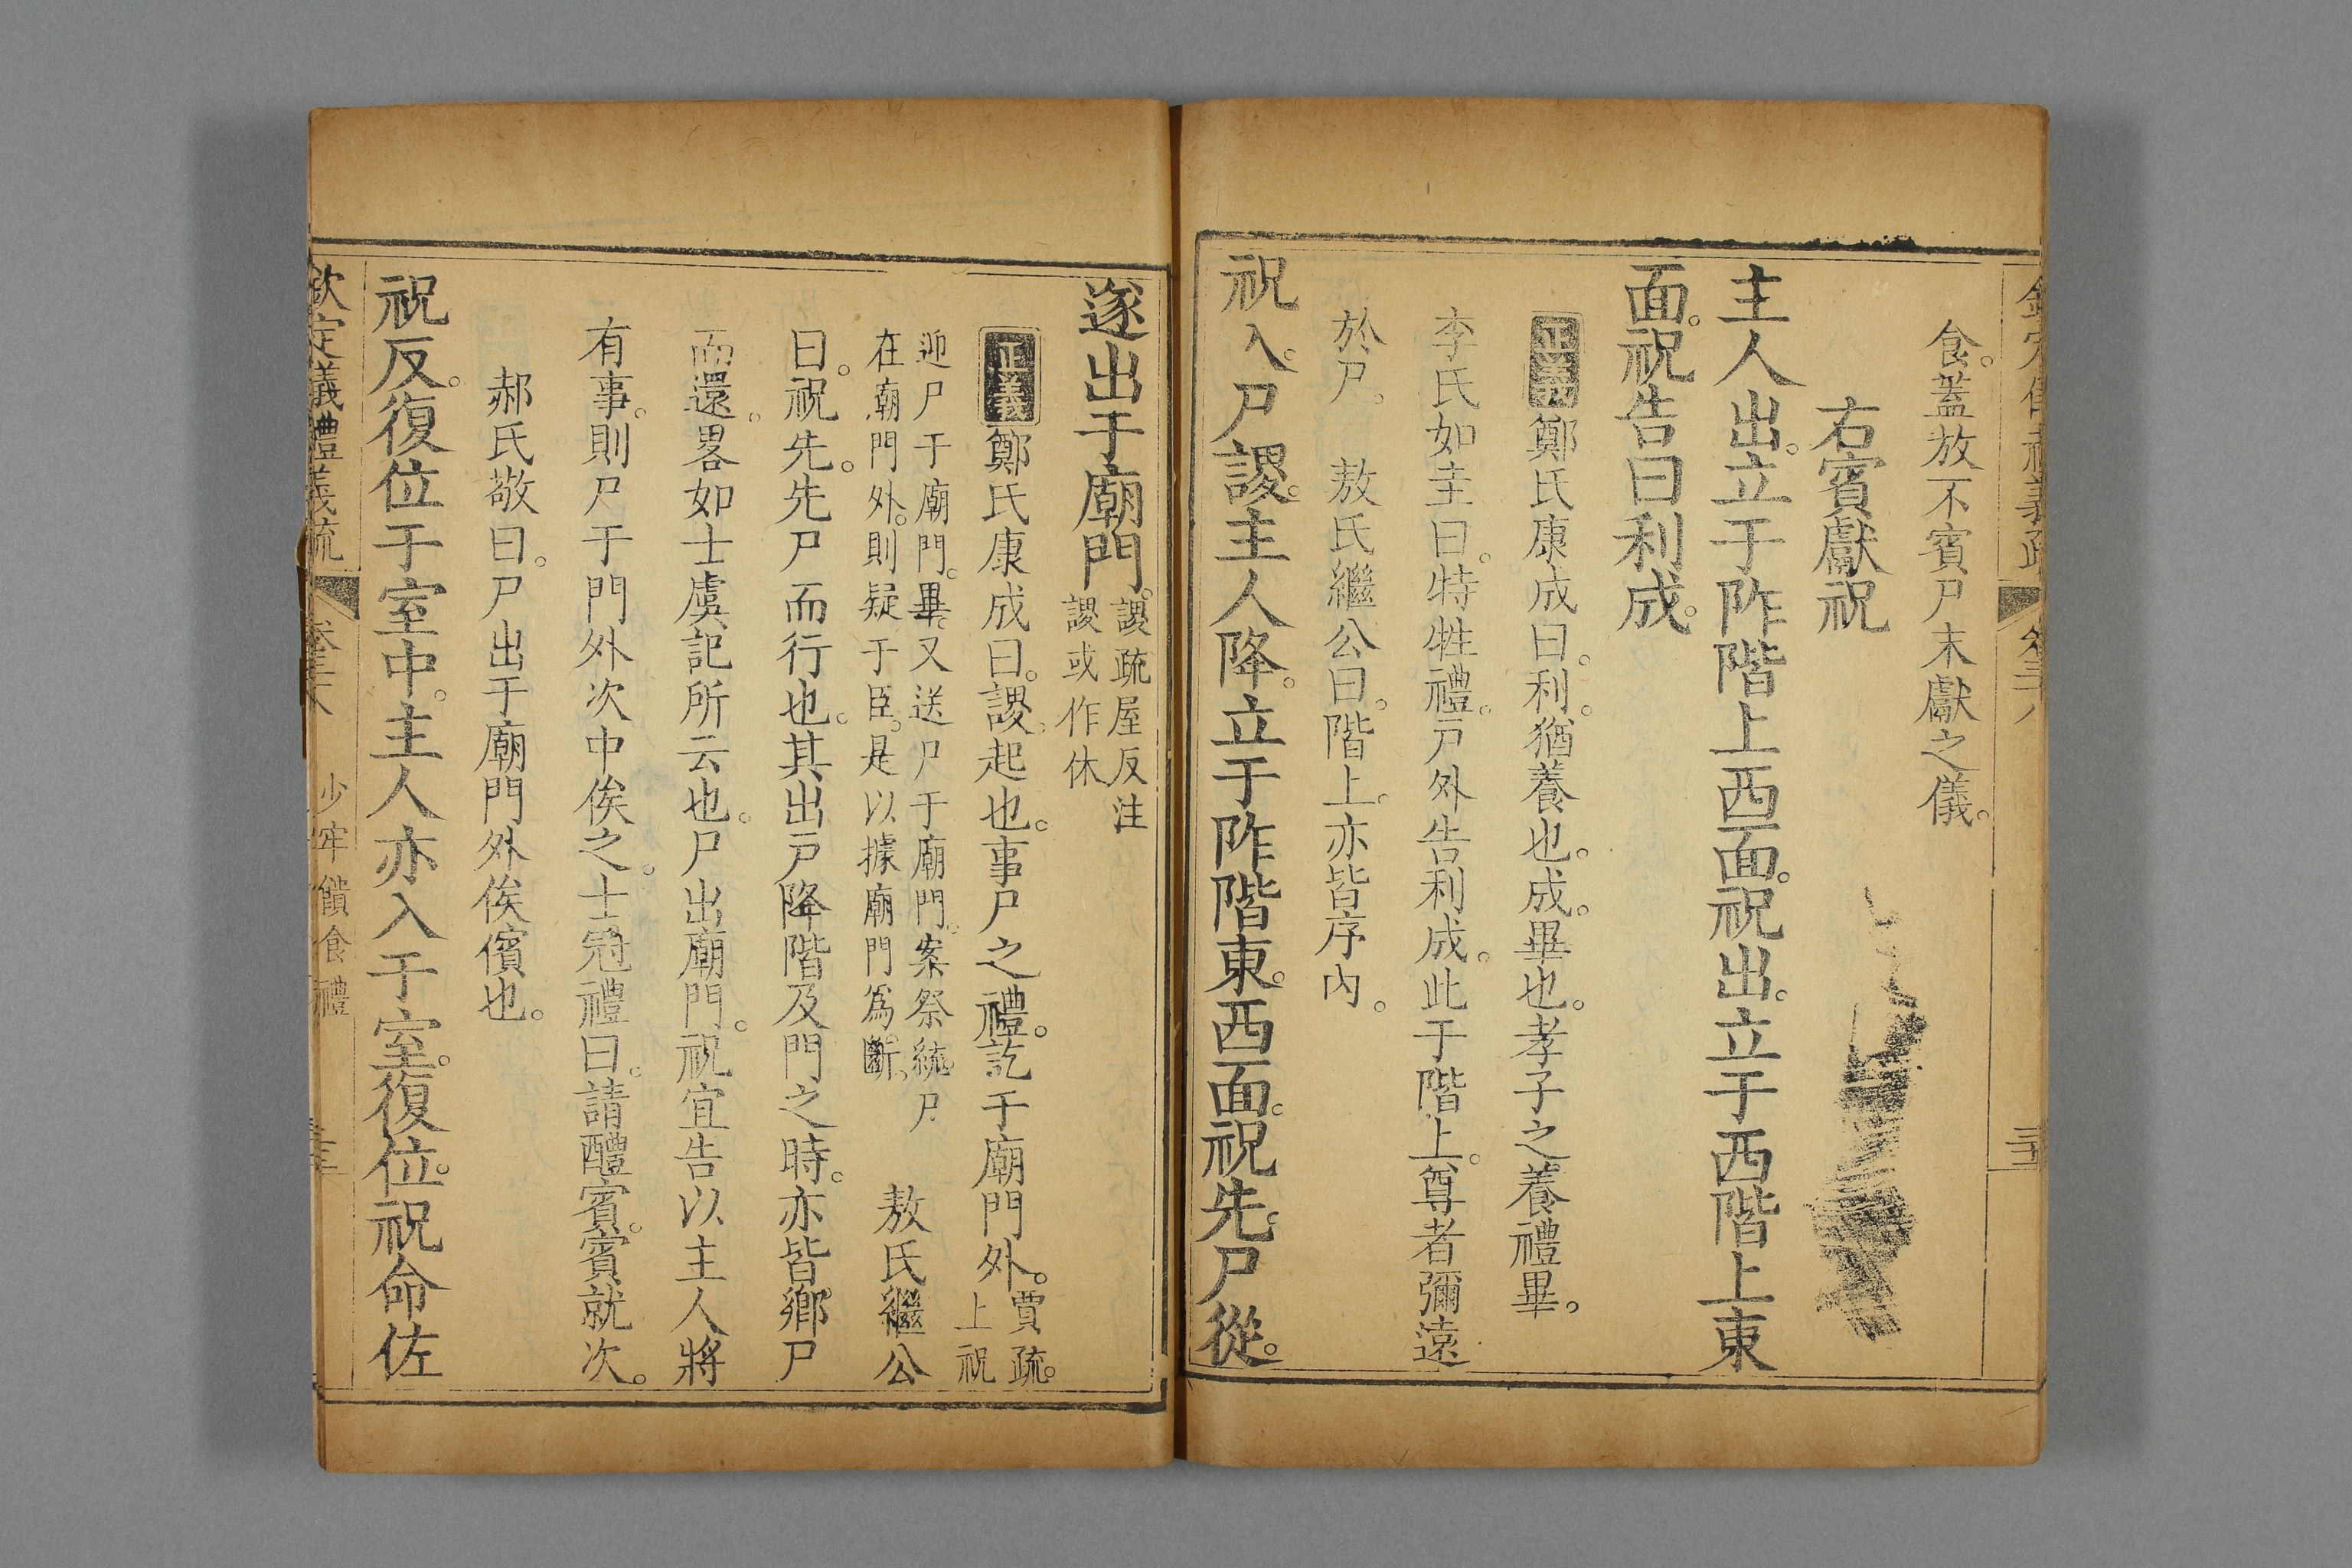 食。蓋放不賓尸末獻之儀。
右賓獻祝
主人出。立于阼階上西面。祝出。立于西階上東
面。祝告曰利成。
正義鄭氏康成曰。利。猶養也。成。畢也。孝子之養禮畢。
李氏如圭曰。特牲禮。戸外告利成。此于階上。尊者彌遠
於尸。 敖氏繼公曰。階上。亦皆序內。
祝入。尸謖。主人降。立于阼階東。西面。祝先。尸從。
遂出于廟門。
謖疏屋反注
謖或作休
正義鄭氏康成曰。謖。起也。事尸之禮。訖于廟門外。
賈疏。
上祝
迎尸于廟門。畢。又送尸于廟門。案祭統。尸
在廟門外。則疑于臣。是以據廟門爲斷。
敖氏繼公
曰。祝先。先尸而行也。其出戸降階及門之時。亦皆鄉尸
而還。畧如士虞記所云也。尸出廟門。祝宜告以主人將
有事。則尸于門外次中俟之。士冠禮曰。請醴賓。賓就次。
郝氏敬曰。尸出于廟門外俟儐也。
祝反。復位于室中。主人亦入于室。復位。祝命佐
欽定儀禮義疏
少牢饋食禮